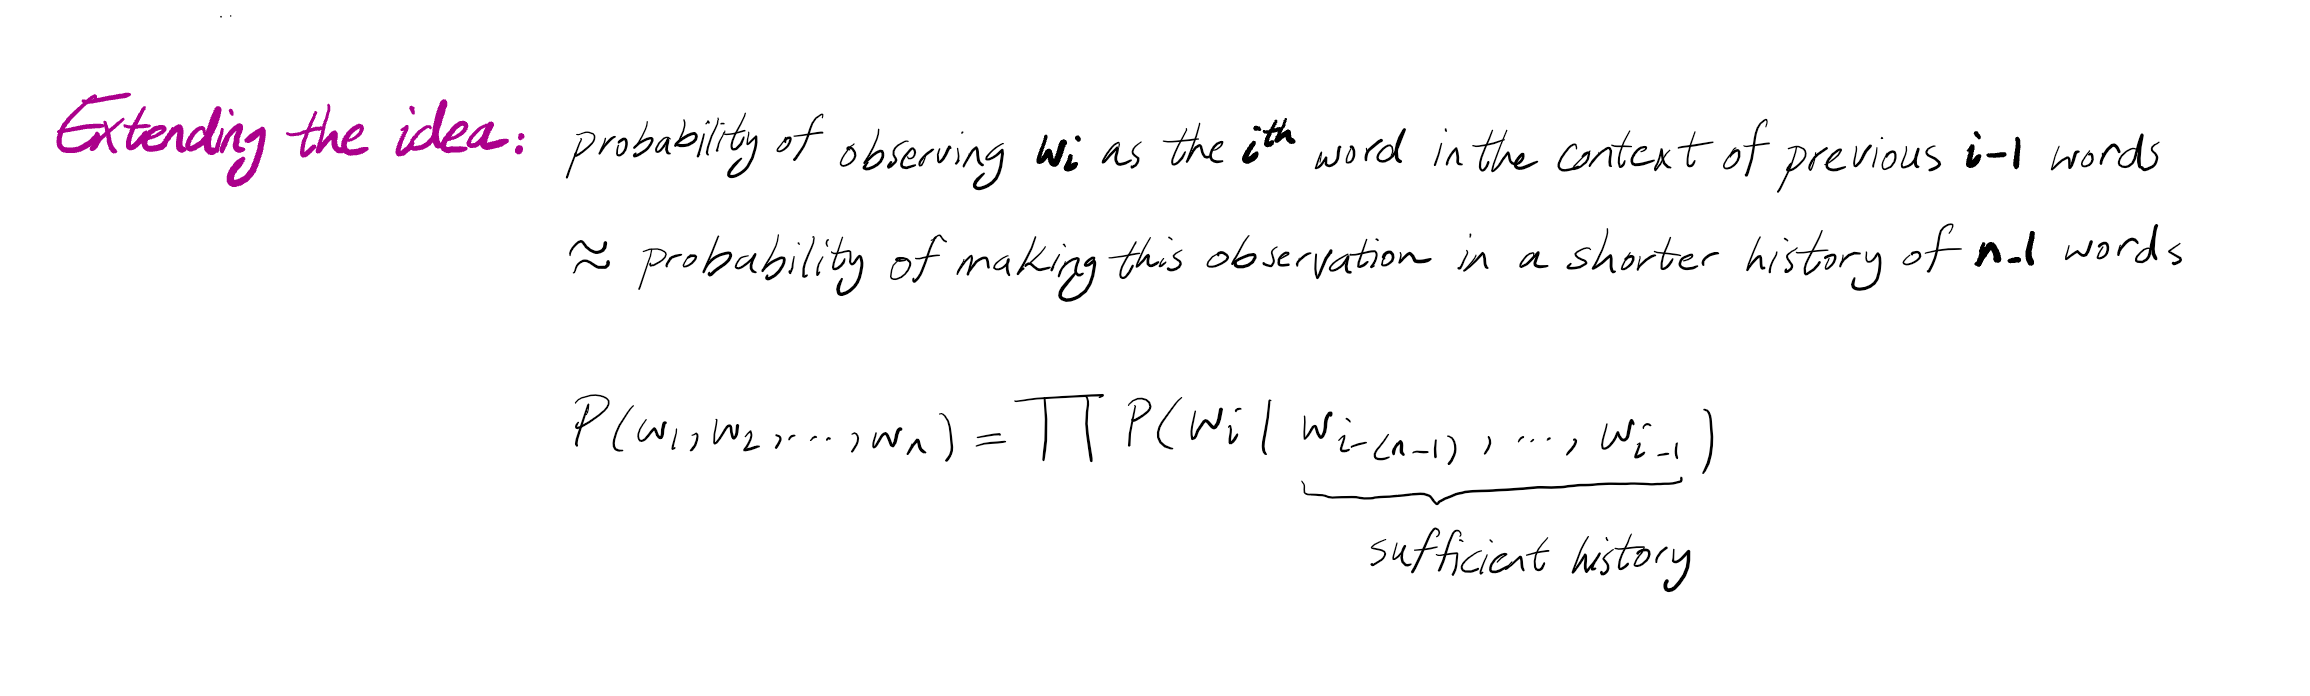 Extending the idea: probability of observing wi as the ith word in the context of previous i-1 words
≈ probability of making this observation in a shorter history of n-1 words
P(w1, w2, ..., wn) = ∏ P(wi | wi-(n-1), ..., wi-1)
sufficient history